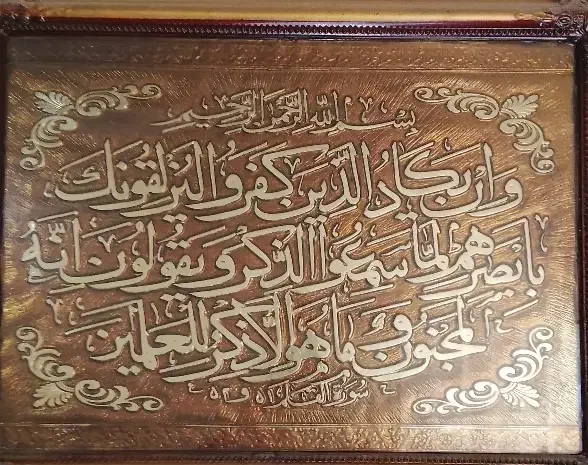 بسم الله الرحمن الرحيم
وان يكاد الذين كفروا ليزلقونك
بابصرهم لما سمعوا الذكر و يقولون انه
لمجنون و ما هو الا ذكر للعلمين
سورة القلم ٥١ و ٥٢